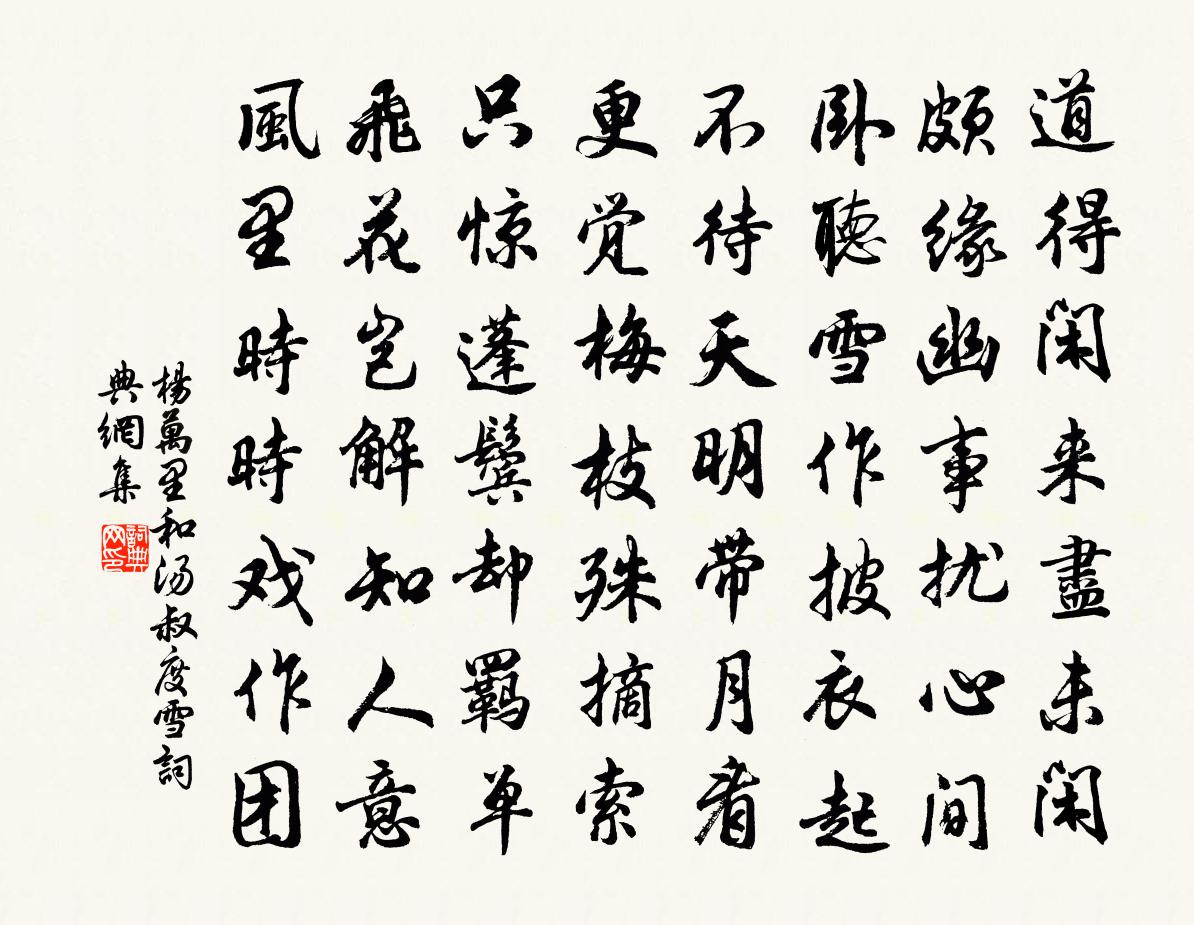 道得闲来盡未闲
頗缘幽事扰心间
卧聽雪作披衣起
不待天明带月看
更觉梅枝殊摘索
只惊蓬鬓却羁单
飛花岂解知人意
風里時時戏作团
楊萬里和汤叔度雪詞
典網集
詞典网印